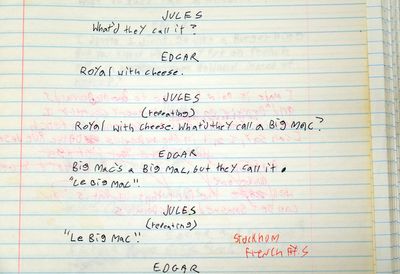 JULES
What'd they call it?
EDGAR
Royal with cheese.
JULES
(repeating)
Royal with cheese. What'd they call a Big Mac?
EDGAR
Big Mac's a Big Mac, but they call it
"Le Big Mac".
JULES
(repeating)
"Le Big Mac".
Stockhom
French Apt.s
EDGAR